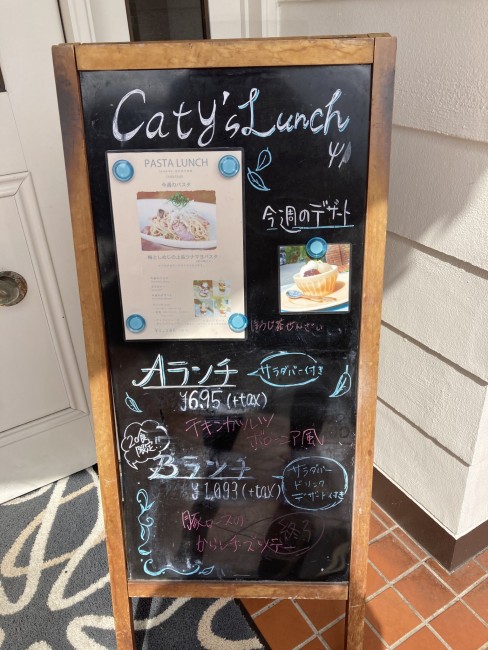 Caty's Lunch
PASTA LUNCH
今週のパスタ
今週のデザート
ほうじ茶ぜんざい
Aランチ
サラダバー付き
¥695(+tax)
チキンカツレツ
ボロニア風
20食
限定!!
Bランチ
¥1,093(+tax)
サラダバー
ドリンク
デザート付き
豚ロースの
からしチーズソテー